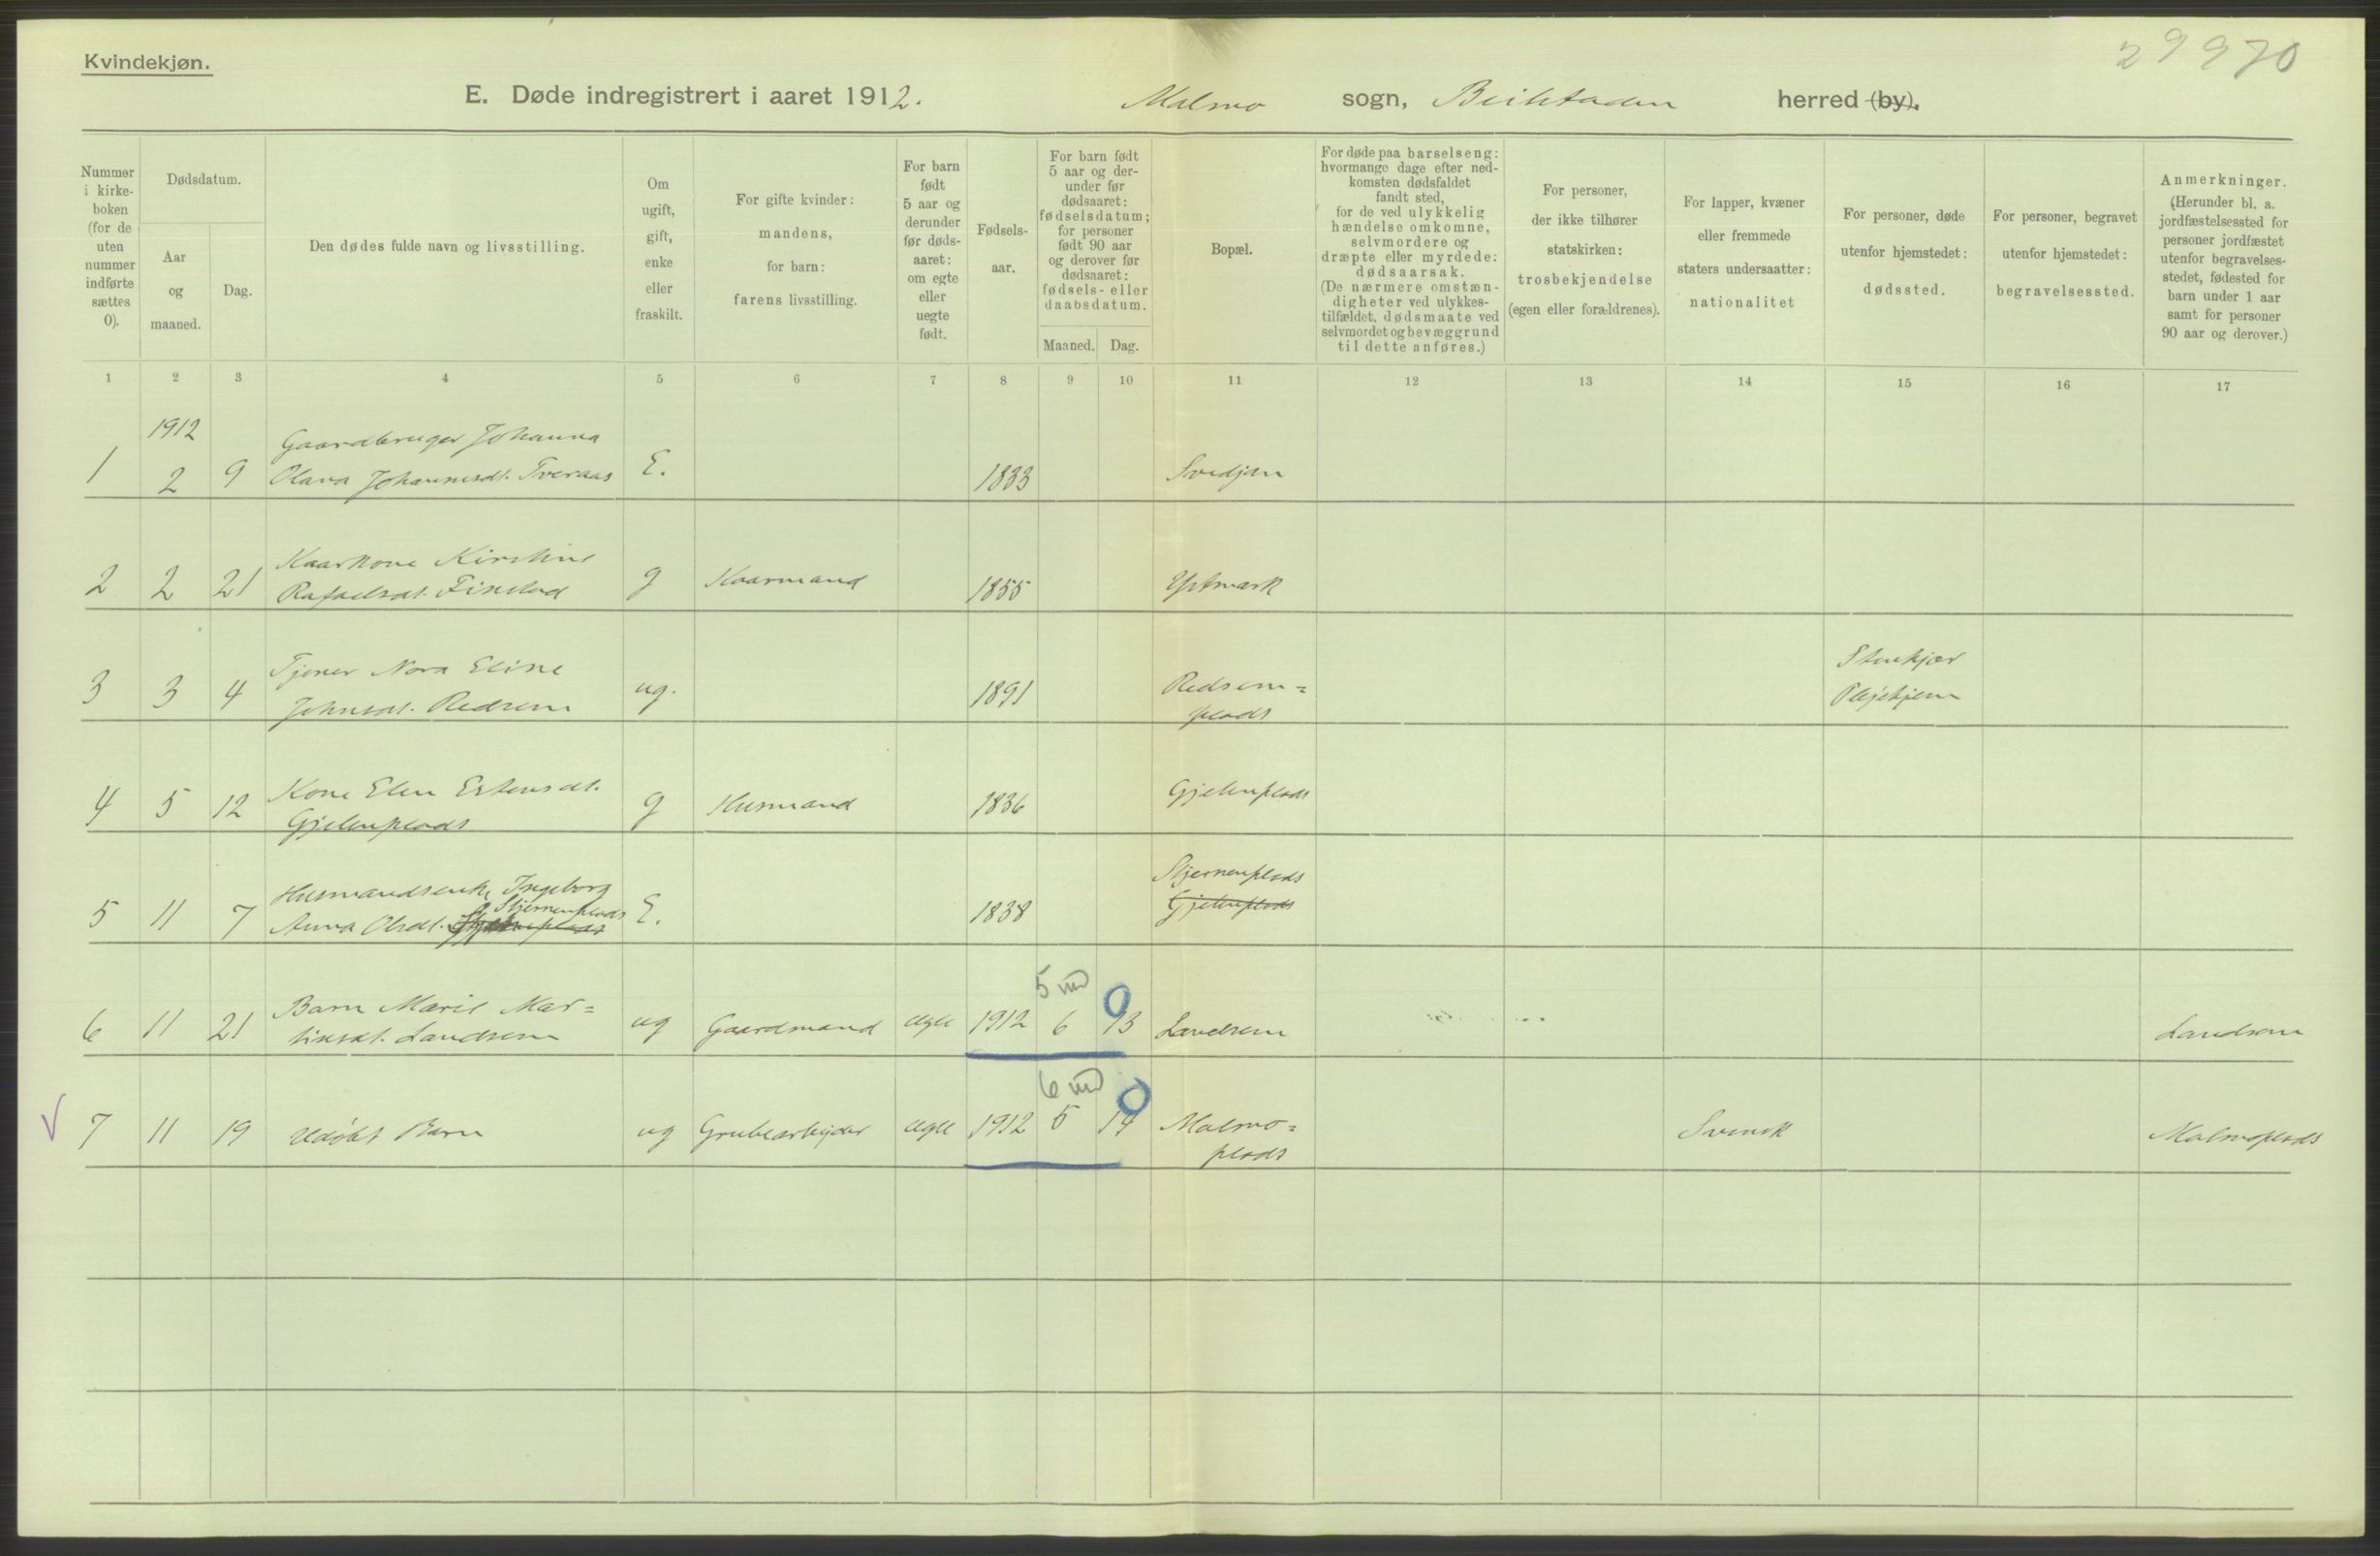 29970
Kvindekjøn.
E. Døde indregistrert i aaret 1912. Malmo sogn, Beitstaden herred (by).
Nummer i kirke-boken (for de uten nummer indførte sættes 0).
Dødsdatum.
Aar og maaned.
Dag.
Den dødes fulde navn og livsstilling.
Om ugift, gift, enke eller fraskilt.
For gifte kvinder: mandens, for barn: farens livsstilling.
For barn født 5 aar og derunder før døds-aaret: om egte eller uegte født.
Fødsels-aar.
For barn født 5 aar og der-under før dødsaaret: fødselsdatum; for personer født 90 aar og derover før dødsaaret: fødsels- eller daabsdatum.
Maaned. Dag.
Bopæl.
For døde paa barselseng: hvormange dage efter ned-komsten dødsfaldet fandt sted, for de ved ulykkelig hændelse omkomne, selvmordere og dræpte eller myrdede: dødsaarsak. (De nærmere omstæn-digheter ved ulykkes-tilfældet, dødsmaate ved selvmordet og bevæggrund til dette anføres.)
For personer, der ikke tilhører statskirken: trosbekjendelse (egen eller forældrenes).
For lapper, kvæner eller fremmede staters undersaatter: nationalitet
For personer, døde utenfor hjemstedet: dødssted.
For personer, begravet utenfor hjemstedet: begravelsessted.
Anmerkninger. (Herunder bl. a. jordfæstelsessted for personer jordfæstet utenfor begravelses-stedet, fødested for barn under 1 aar samt for personer 90 aar og derover.)
1 2 3 4 5 6 7 8 9 10 11 12 13 14 15 16 17
1912
Gaardbruger Johanna
1 2 9 Olava Johannesdt. Tveraas E. 1833 Svedjan
Kaarkone Kirstine
2 2 21 Rafaelsdt. Finstad g Kaarmand 1855 Ystmark
Tjener Nora Eline Stenkjær
3 3 4 Johnsdt. Redsem ug. 1891 Redsem= Plejehjem
plads
Kone Elen Estensdt. Gjelenplads
4 5 12 Gjelenplads g Husmand 1836
Husmandsenke Ingeborg Stjernenplads
Stjernenplads
5 11 7 Anna Olsdt. E. 1838 Gjelenplads
5 md 0
Barn Marie Mar=
6 11 21 tinsdt. Landsem ug Gaardmand egte 1912 6 13 Landsem Landsem
6 md 0
V 7 11 19 Udøbt Barn ug Grubearbejder egte 1912 5 14 Malmo= Svensk Malmoplads
plads